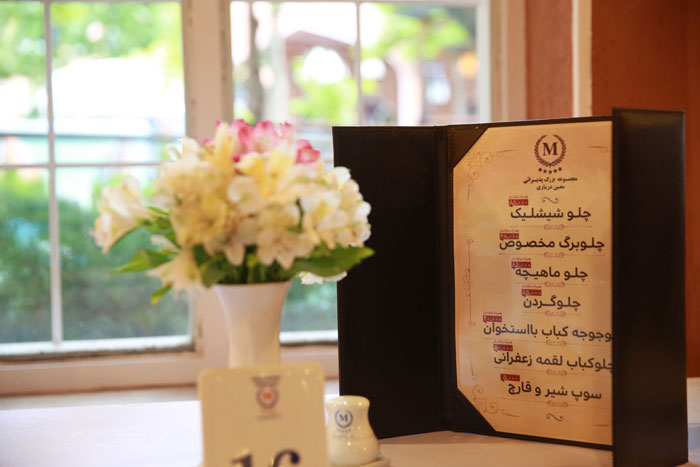 M
مجموعه بزرگ پذیرائی
معین درباری
چلو شیشلیک
چلوبرگ مخصوص
چلو ماهیچه
چلوگردن
وجوجه کباب بااستخوان
چلوکباب لقمه زعفرانی
سوپ شیر و قارچ
M
16